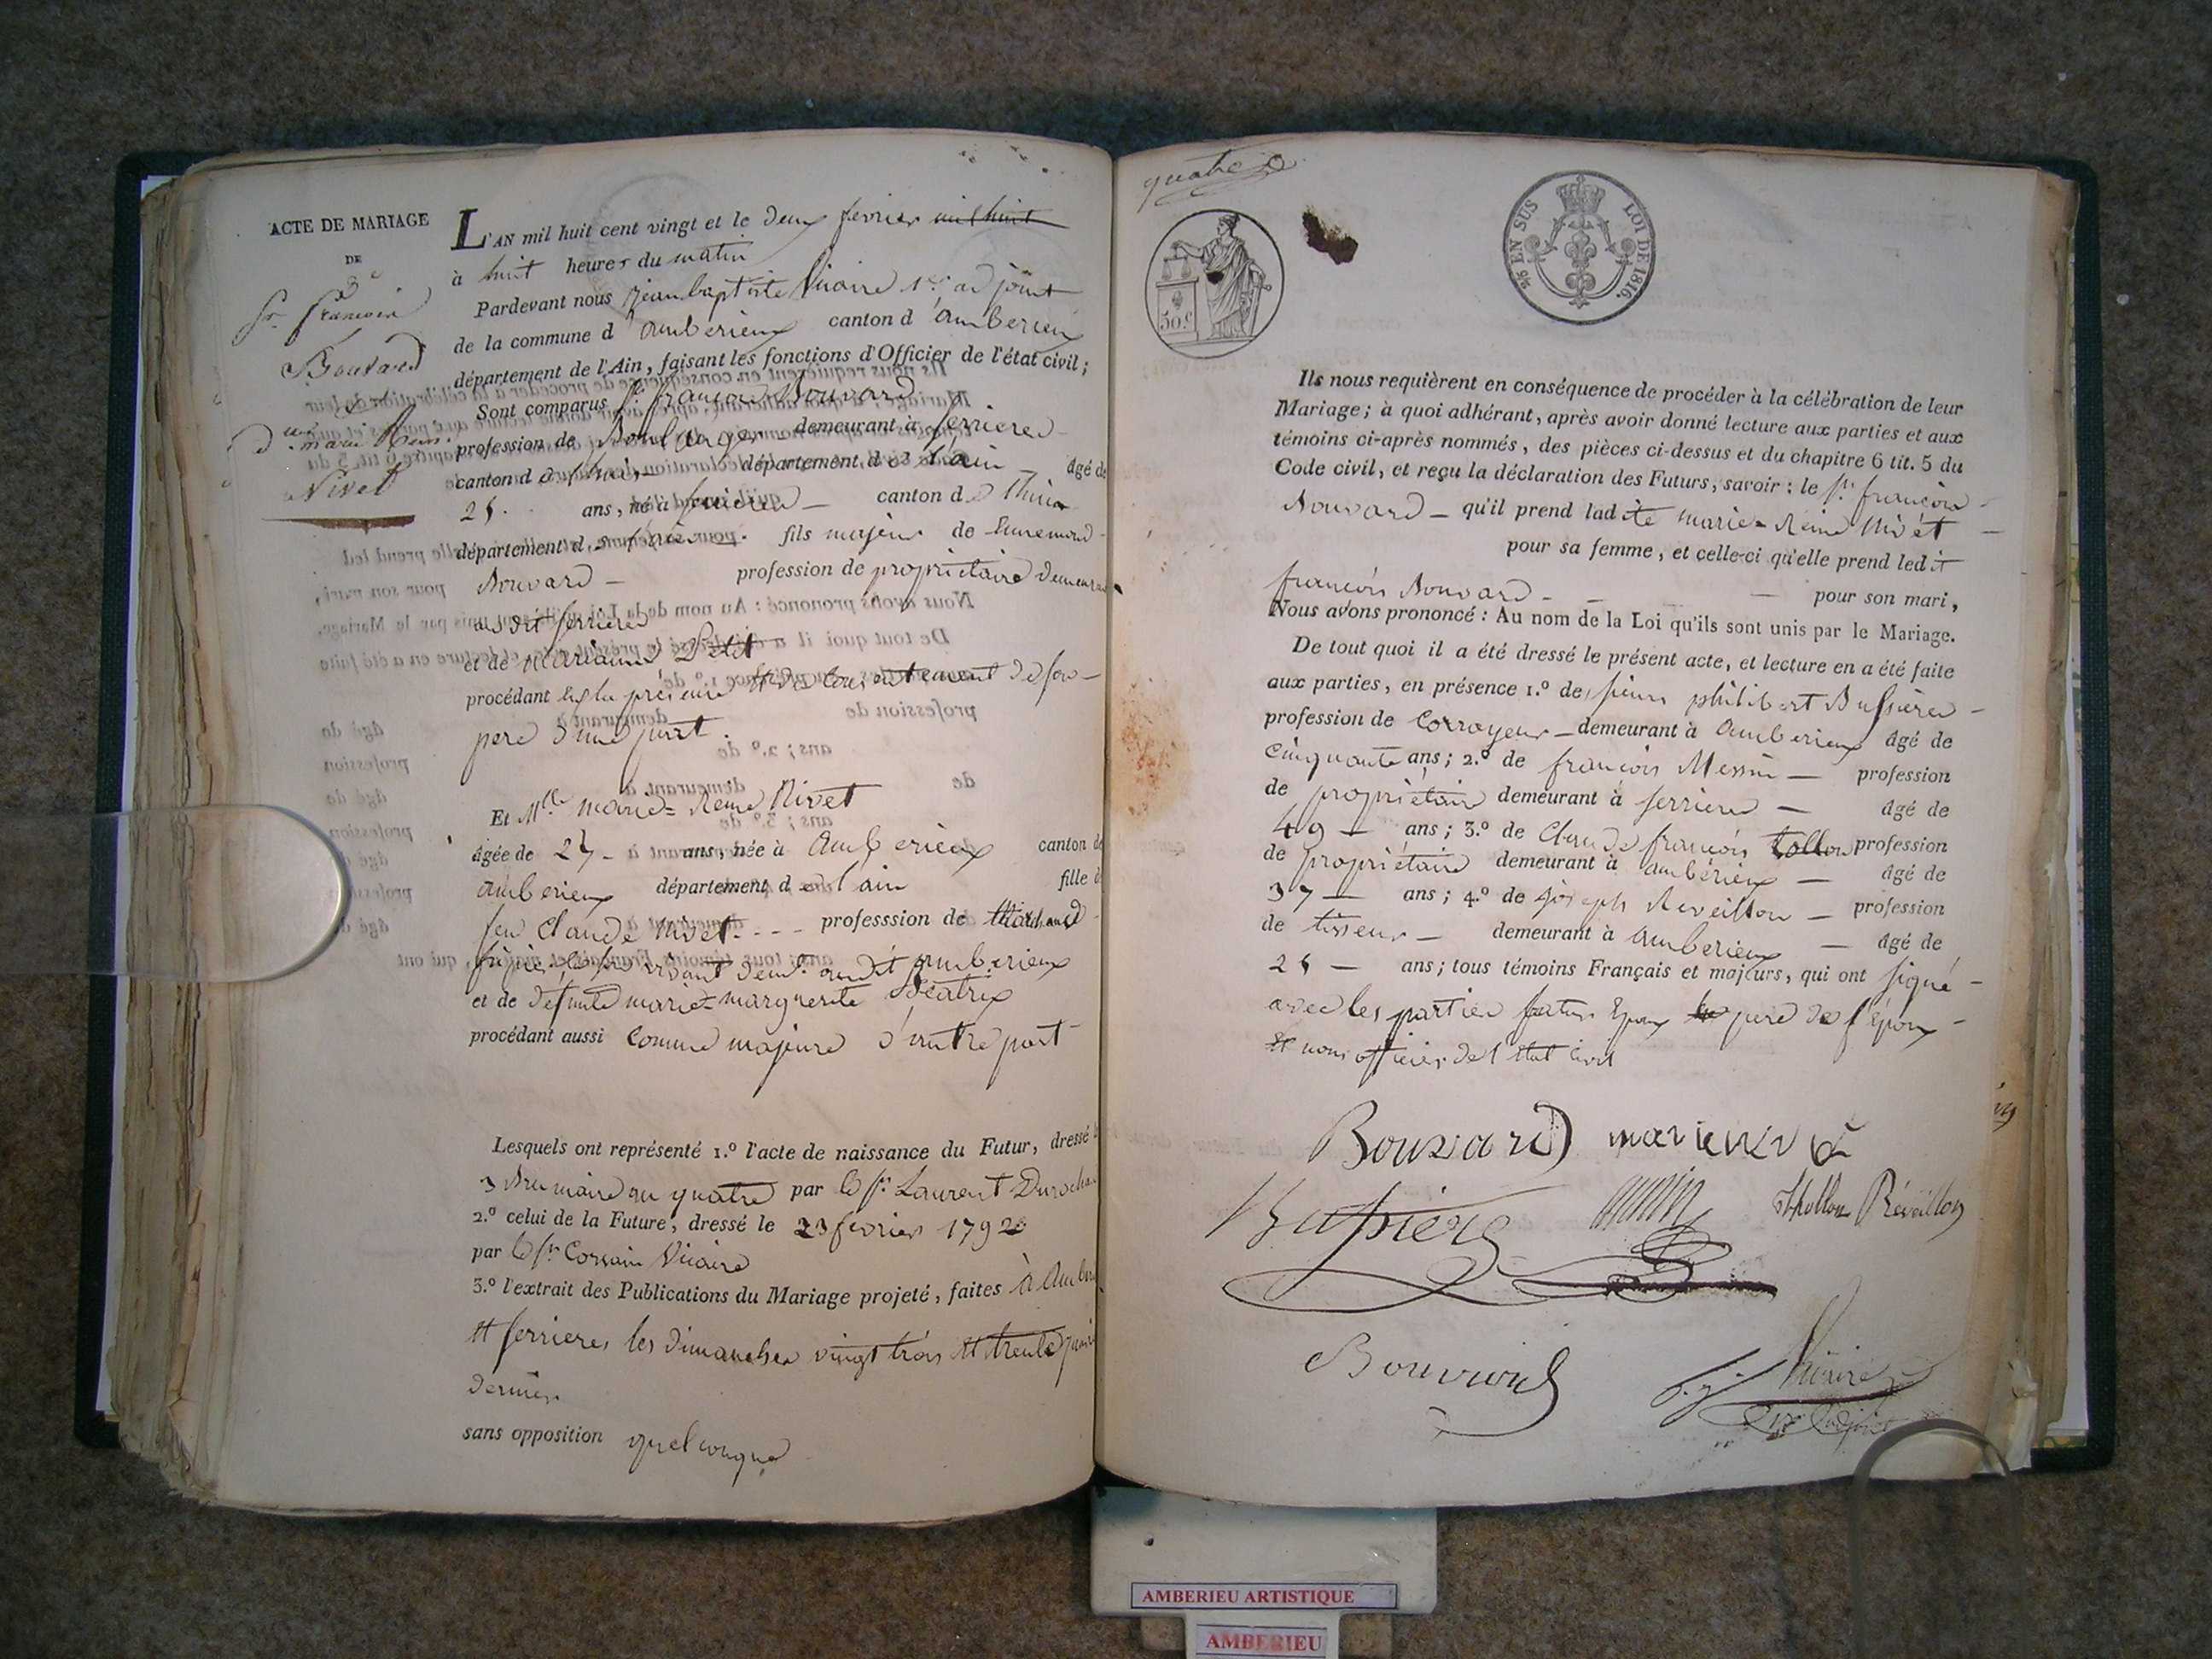 ACTE DE MARIAGE
DE
Sr. françois
Bouvard
&
d.lle marie Reine
Nivet
L'AN mil huit cent vingt et le deux fevrier mil huit
à huit heures du matin
Pardevant nous jean baptiste Vicaire 1er adjoint
de la commune d'amberieux canton d'amberieux
département de l'Ain, faisant les fonctions d'Officier de l'état civil;
Sont comparus Sr. françois Bouvard
profession de Boulanger demeurant à ferrieres
canton de département de l'ain âgé de
ans, né à ferrieres canton de
département de l'ain fils majeur de
Bouvard profession de propriétaire demeurant
audit ferrieres
et de Marianne Petit
procédant en la présence et du consentement de son
pere d'une part.
Et Mlle marie-Reine Nivet
âgée de 27 ans, née à Amberieux canton d
amberieux département de l'ain fille d
feu Claude Nivet professsion de Marchand
vivant demt. audit amberieux
et de defunte marie-marguerite Béatrix
procédant aussi Comme majeure d'autre part
Lesquels ont représenté 1.º l'acte de naissance du Futur, dressé l
3 Brumaire an quatre par le Sr. Laurent
2.º celui de la Future, dressé le 23 fevrier 1792
par le Sr Vicaire
3.º l'extrait des Publications du Mariage projeté, faites à
et ferrieres les dimanches vingt trois et trente
dernier
sans opposition quelconque
quatre
EN SUS LOI DE 1816.
50.c
Ils nous requièrent en conséquence de procéder à la célébration de leur
Mariage; à quoi adhérant, après avoir donné lecture aux parties et aux
témoins ci-après nommés, des pièces ci-dessus et du chapitre 6 tit. 5 du
Code civil, et reçu la déclaration des Futurs, savoir: le Sr. françois
Bouvard qu'il prend ladite marie-Reine Nivet
pour sa femme, et celle-ci qu'elle prend ledit
françois Bouvard pour son mari,
Nous avons prononcé: Au nom de la Loi qu'ils sont unis par le Mariage.
De tout quoi il a été dressé le présent acte, et lecture en a été faite
aux parties, en présence 1.º de sieurs philibert Bussieres
profession de Corroyeur demeurant à Amberieux âgé de
Cinquante ans; 2.º de françois Messin profession
de propriétaire demeurant à ferrieres âgé de
49 ans; 3.º de Claude françois tollon profession
de propriétaire demeurant à ambérieux âgé de
37 ans; 4.º de joseph Reveillon profession
de tisseur demeurant à Amberieux âgé de
ans; tous témoins Français et majeurs, qui ont signé
avec les parties futurs Epoux le pere de l'époux
et nous officier de l'état civil
Bouvard marie nivet
Bussiere thollon Réveillon
Bouvard
Vicaire